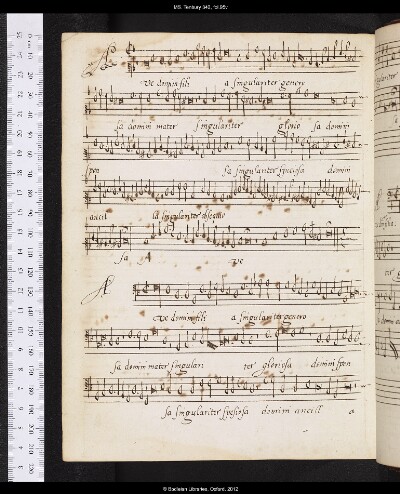 MS. Tenbury 342, fol.95v
A
ve domin fili a singulariter genero
sa domin mater singulariter glorio sa domini
spon sa singulariter speciosa domin
ancil la singulariter
sa A ve
A
ve domin fili a singulariter genero
sa domin mater singulari ter gloriosa domini spon
sa singulariter speciosa domini ancill a
© Bodleian Libraries, Oxford, 2012